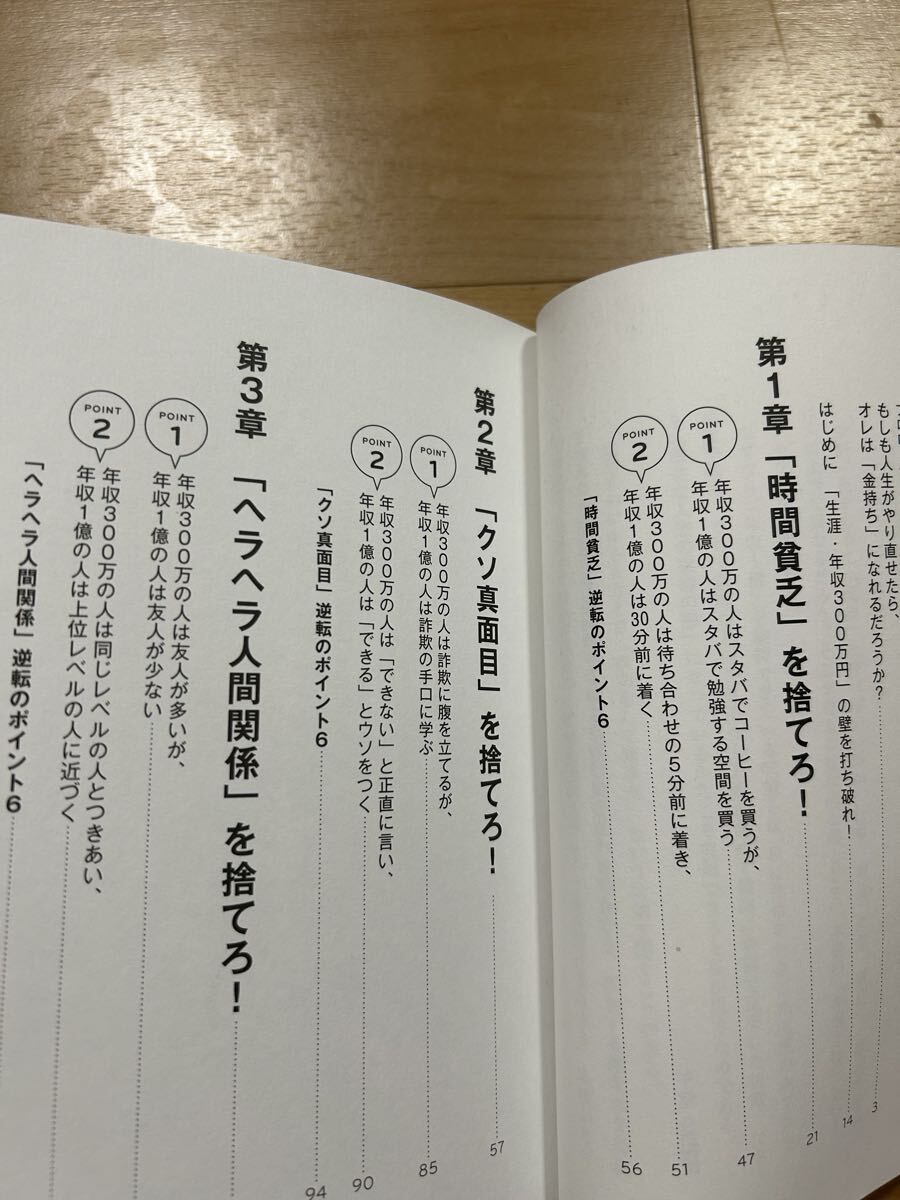 もしも人生がやり直せたら、
オレは「金持ち」になれるだろうか?
3
はじめに 「生涯・年収300万円」の壁を打ち破れ!
14
第1章 「時間貧乏」を捨てろ!
21
POINT
1
年収300万の人はスタバでコーヒーを買うが、
年収1億の人はスタバで勉強する空間を買う
47
POINT
2
年収300万の人は待ち合わせの5分前に着き、
年収1億の人は30分前に着く
51
「時間貧乏」逆転のポイント6
56
第2章 「クソ真面目」を捨てろ!
57
POINT
1
年収300万の人は詐欺に腹を立てるが、
年収1億の人は詐欺の手口に学ぶ
85
POINT
2
年収300万の人は「できない」と正直に言い、
年収1億の人は「できる」とウソをつく
90
「クソ真面目」逆転のポイント6
94
第3章 「ヘラヘラ人間関係」を捨てろ!
POINT
1
年収300万の人は友人が多いが、
年収1億の人は友人が少ない
POINT
2
年収300万の人は同じレベルの人とつきあい、
年収1億の人は上位レベルの人に近づく
「ヘラヘラ人間関係」逆転のポイント6